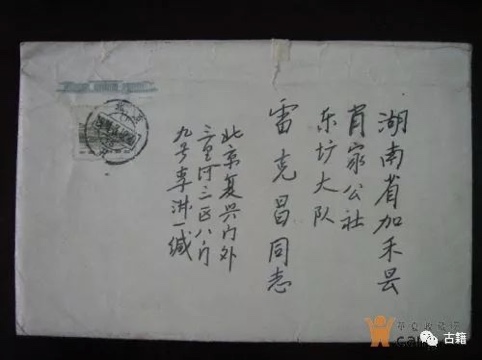 湖南省加禾县
肖家公社
东坊大队
雷克昌同志
北京复兴门外
三里河三区八门
九号李淑一缄
北京
古籍